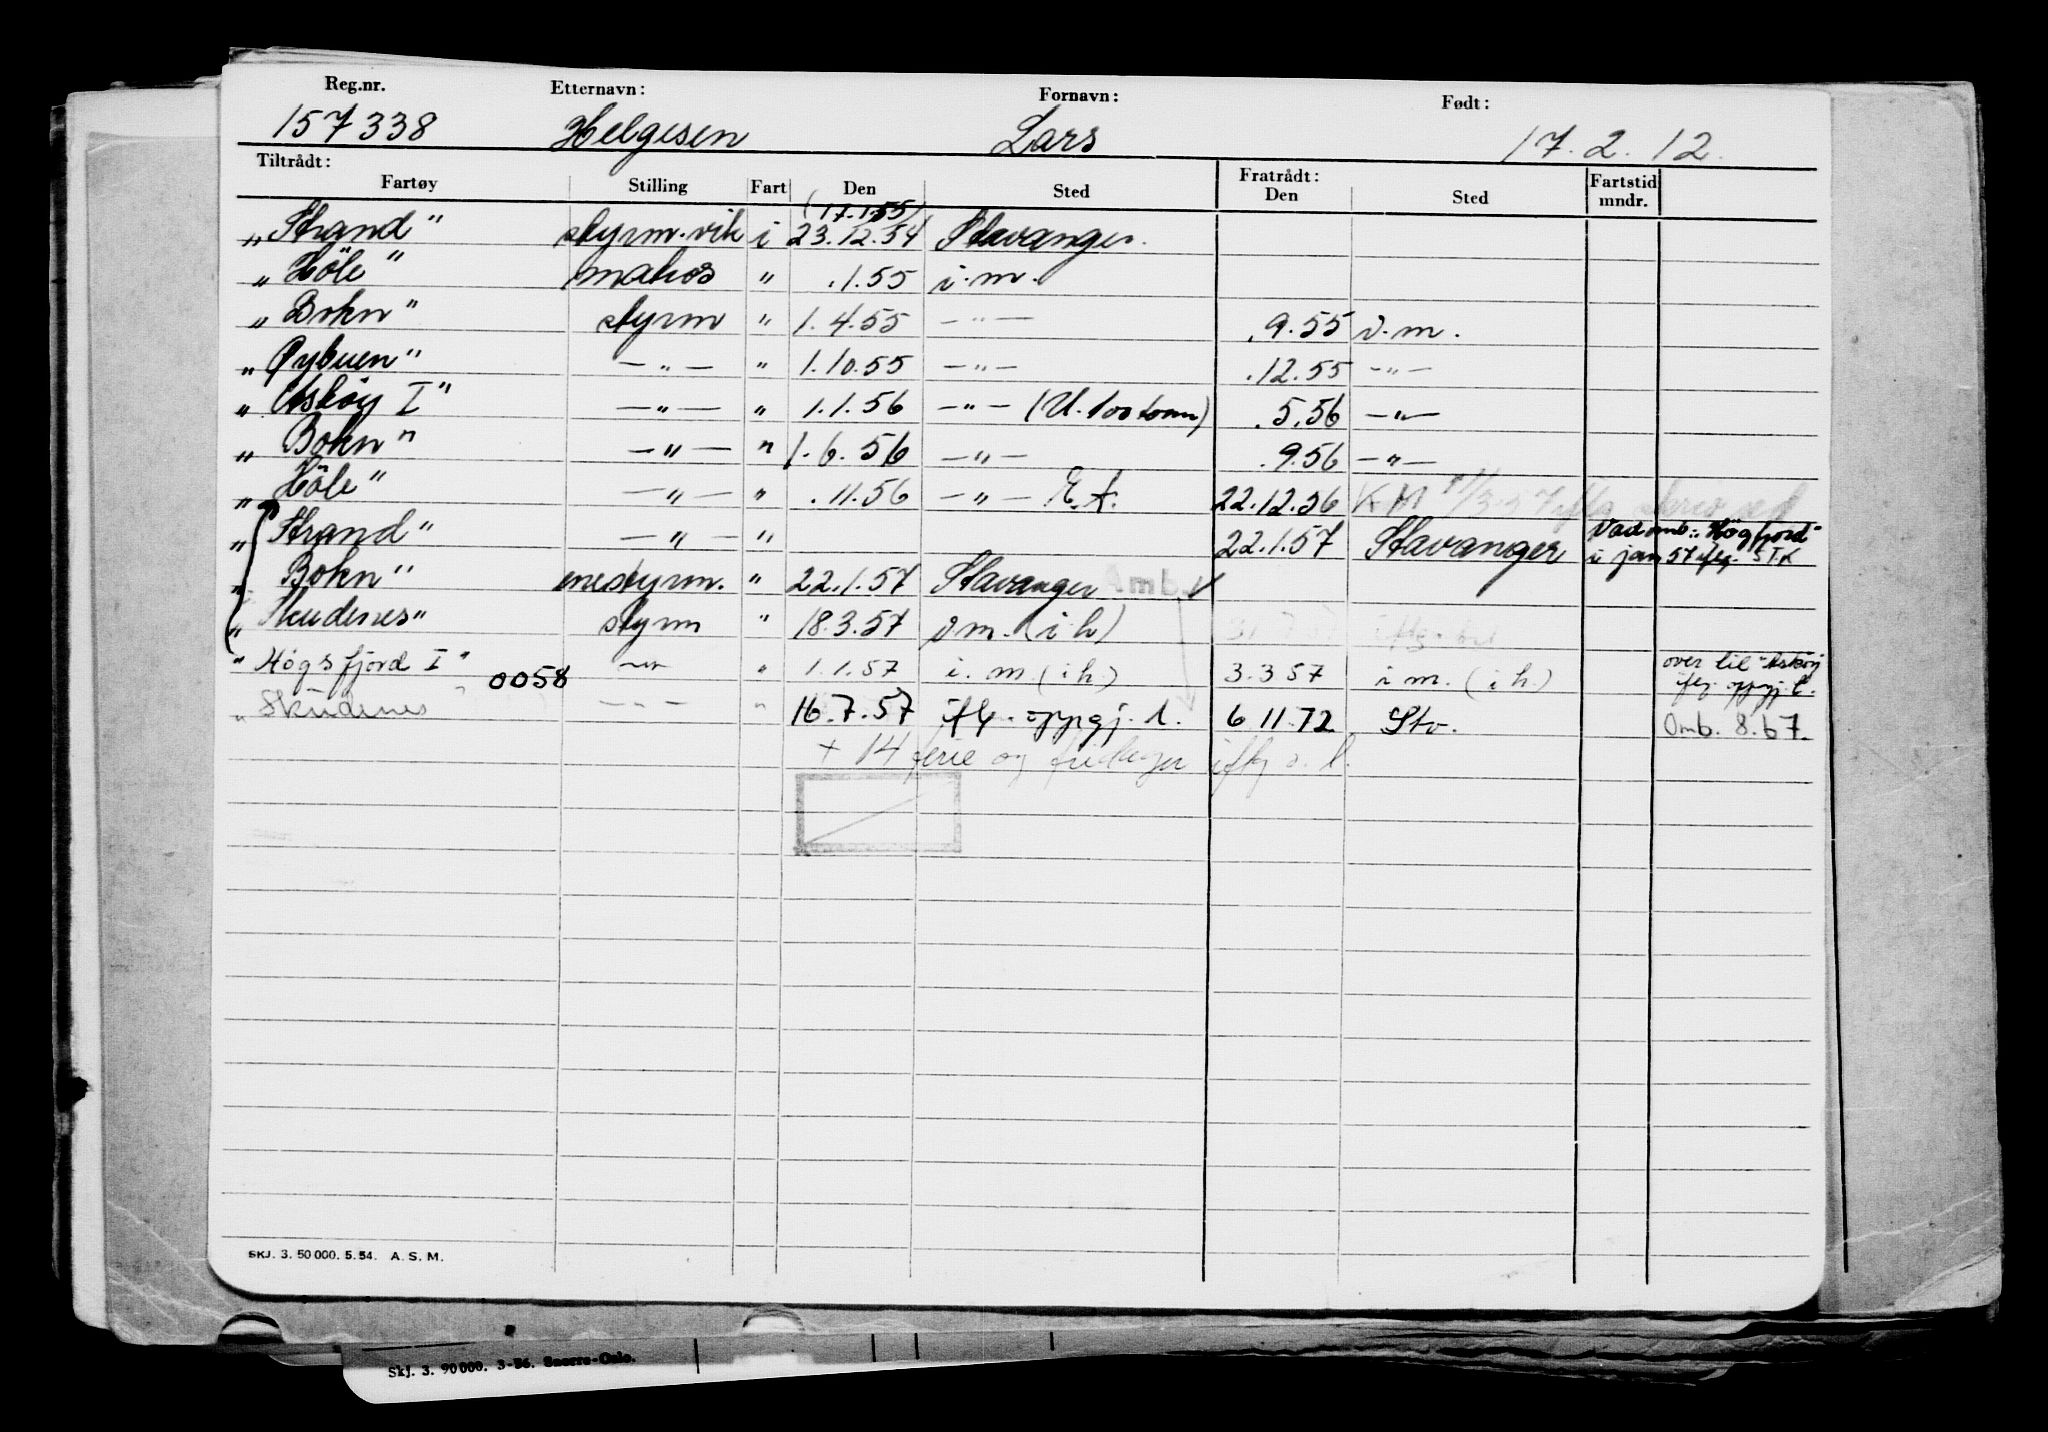 Reg.nr. Etternavn: Fornavn: Født:
157338 Helgesen Lars 17.2.12.
Tiltrådt: Fratrådt:
Fartøy Stilling Fart Den Sted Den Sted Fartstid mndr.
(17.1.55)
„Strand" styrm.vik i 23.12.54 Stavanger.
„Höle" matros " .1.55 i.m.
„Bokn" styrm " 1.4.55 —"— .9.55 i.m.
„Øybuen" —"— " 1.10.55 —"— .12.55 —"—
„Askøy I" —"— " 1.1.56 —"— (U. 100 tonn) .5.56 —"—
„Bokn" —"— " 1.6.56 —"— .9.56 —"—
„Höle" —"— " .11.56 —"— E.A. 22.12.56
„Strand" —"— " 22.1.57 Stavanger Var omb.: "Högsfjord"
i jan 57 iflg. STK
„Bokn" enestyrm. " 22.1.57 Stavanger Amb.
„Skudenes" styrm " 18.3.57 i m. (i h)
"Høgsfjord I" —"— " 1.1.57 i. m. (i h.) 3.3 57 i m. (i h.) over til "Askøy
0058 iflg. oppgj. l.
„Skudenes" —"— " 16.7.57 iflg. oppgj. l. 6 11.72 Stv. Omb. 8.67.
+ 14 ferie og fridager iflg o. l.
SKJ. 3. 50 000. 5. 54. A. S. M.
Skj. 3. 90 000. 3-56. Snorre-Oslo.